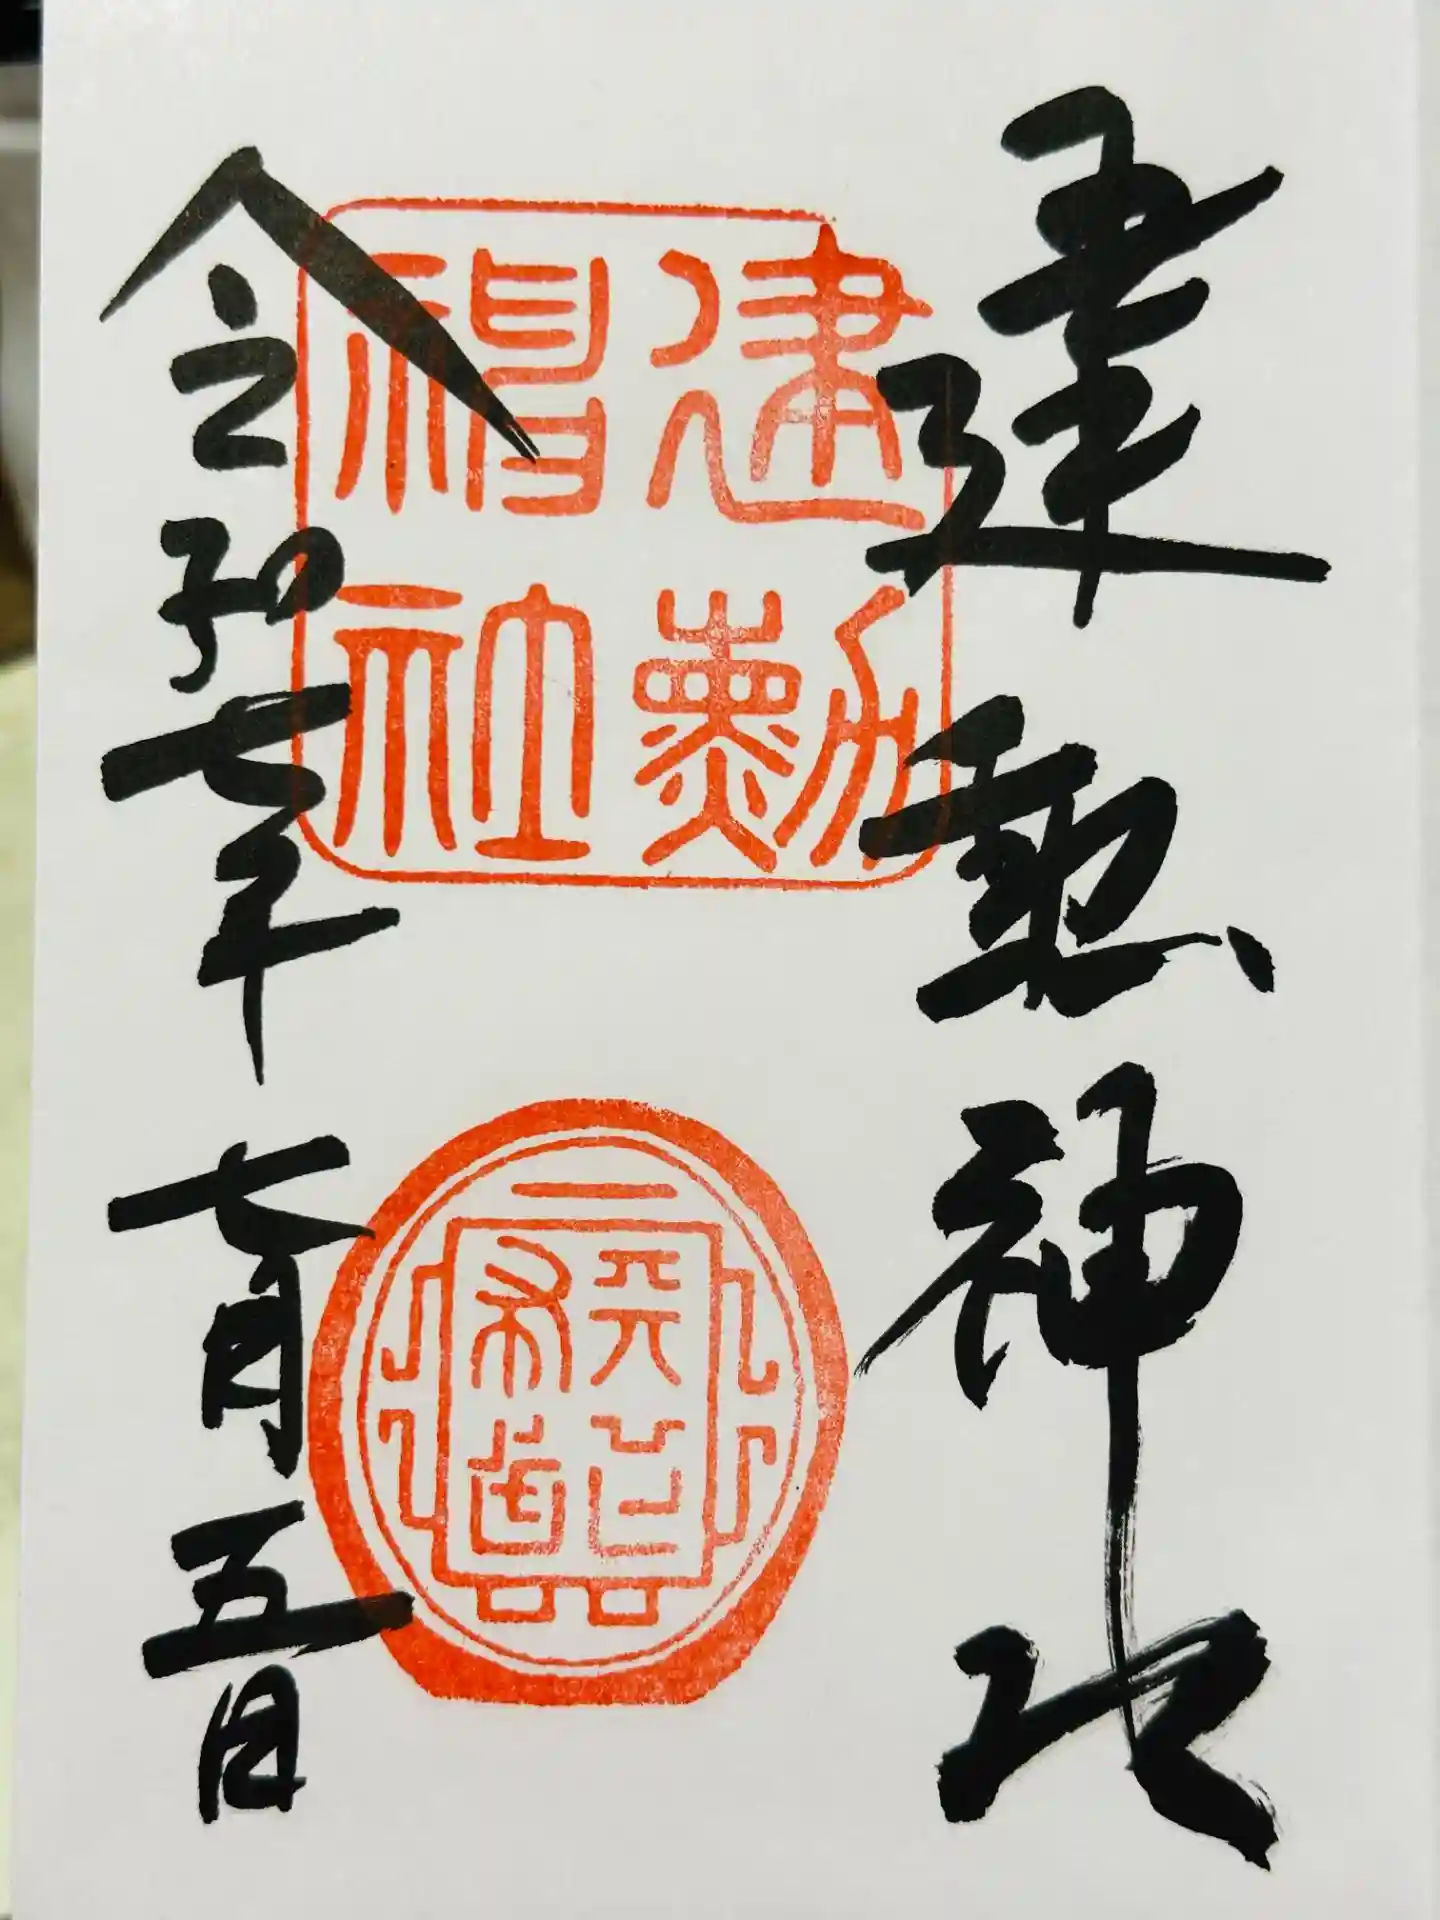 建勲神社
建勲神社
令和七年七月五日